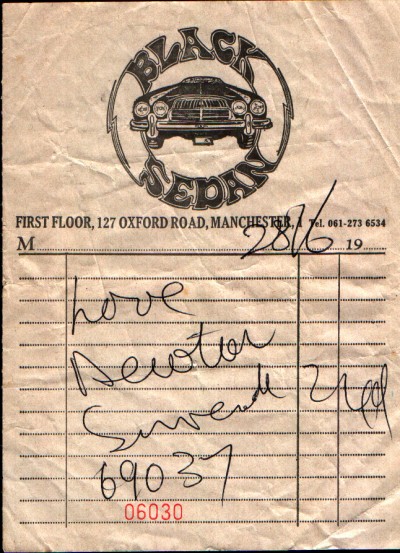 BLACK
SEDAN
FIRST FLOOR, 127 OXFORD ROAD, MANCHESTER, 1 Tel. 061-273 6534
M 28/6 19
Love
Devotion
Surrender
69037
06030